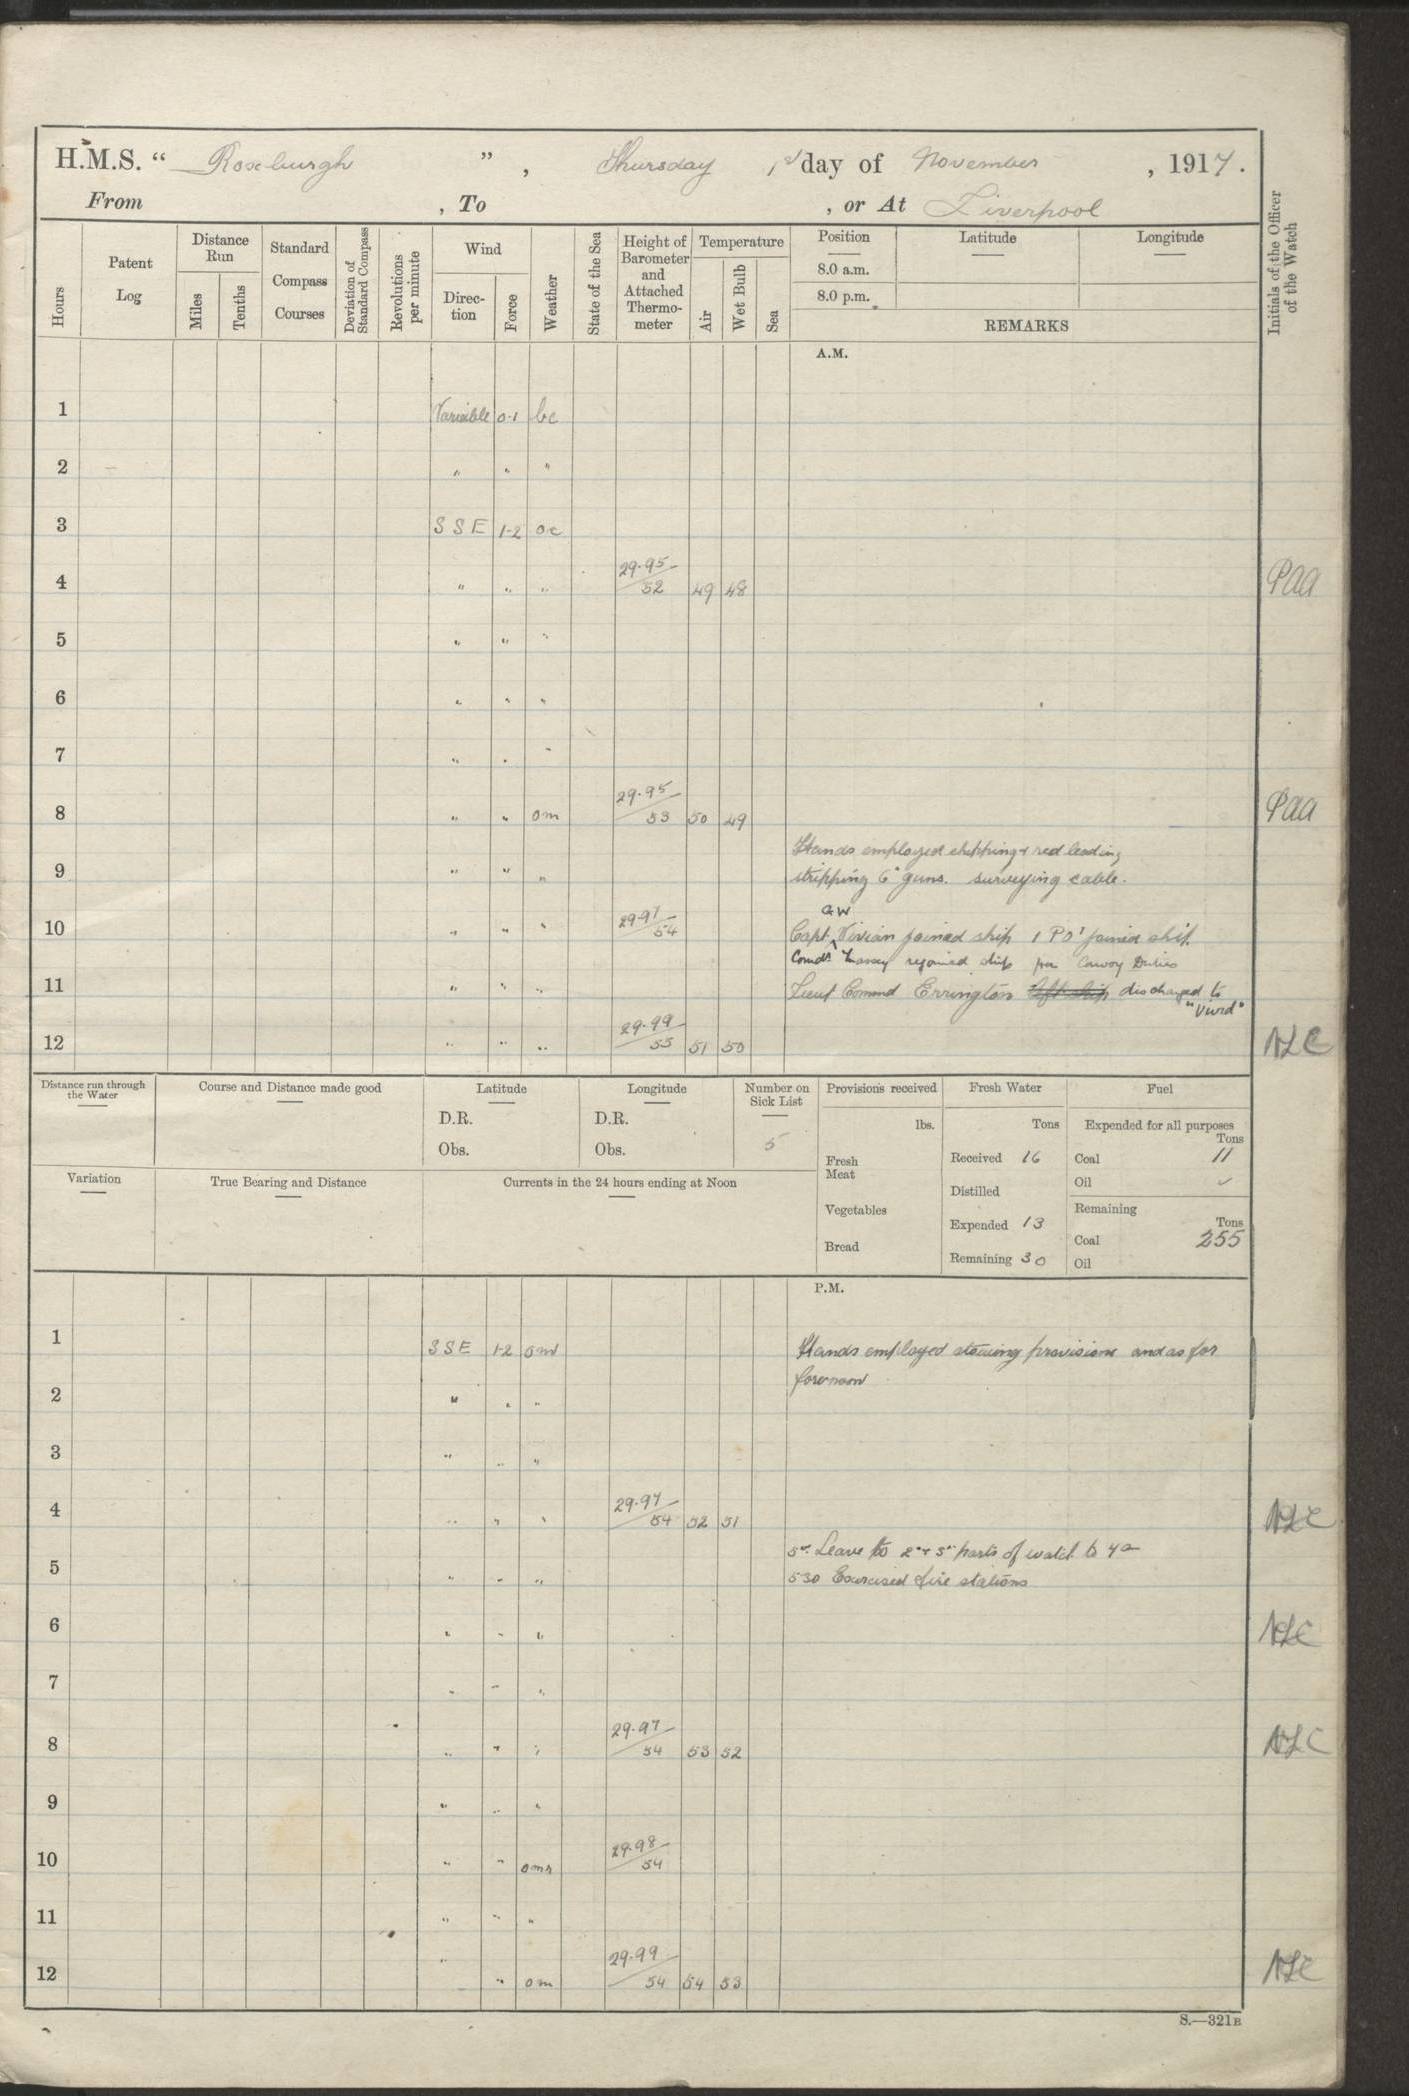 H.M.S. “ Roxburgh ” , Thursday 1st day of November , 1917.
From , To , or At Liverpool
Hours
Patent Log
Distance Run
Miles
Tenths
Standard Compass Courses
Deviation of Standard Compass
Revolutions per minute
Wind
Direc-tion
Force
Weather
State of the Sea
Height of Barometer and Attached Thermo-meter
Temperature
Air
Wet Bulb
Sea
Position Latitude Longitude
8.0 a.m.
8.0 p.m.
REMARKS
Initials of the Officer of the Watch
A.M.
1 Variable 0·1 bc
2 " " "
3 SSE 1-2 oc
4 " " " 29·95/52 49 48 PAA
5 " " "
6 " " "
7 " " "
8 " " om 29·95/53 50 49 PAA
Hands employed chipping & red leading
9 " " " stripping 6" guns. surveying cable.
GW
10 " " " 29·97/54 Capt Vivian joined ship 1 PO' joined ship
Comdr Massey rejoined ship for Convoy Duties
11 " " " Lieut Command Errington left ship discharged to
"Vivid"
12 " " " 29·99/55 51 50 NLC
Distance run through the Water
Course and Distance made good
Latitude
D.R.
Obs.
Longitude
D.R.
Obs.
Number on Sick List
5
Variation
True Bearing and Distance
Currents in the 24 hours ending at Noon
Provisions received
lbs.
Fresh Meat
Vegetables
Bread
Fresh Water
Tons
Received 16
Distilled
Expended 13
Remaining 30
Fuel
Expended for all purposes
Tons
Coal 11
Oil ✓
Remaining
Tons
Coal 255
Oil
P.M.
1 SSE 1-2 om Hands employed stowing provisions and as for
forenoon
2 " " "
3 " " "
4 " " " 29·97/54 52 51 NLC
Leave to 2nd & 3rd parts of watch to 7a
5 " " " 530 Exercised fire stations
6 " " " NLC
7 " " "
8 " " " 29·97/54 53 52 NLC
9 " " "
10 " " omr 29·98/54
11 " " "
12 " " om 29·99/54 54 53 NLC
S.—321B